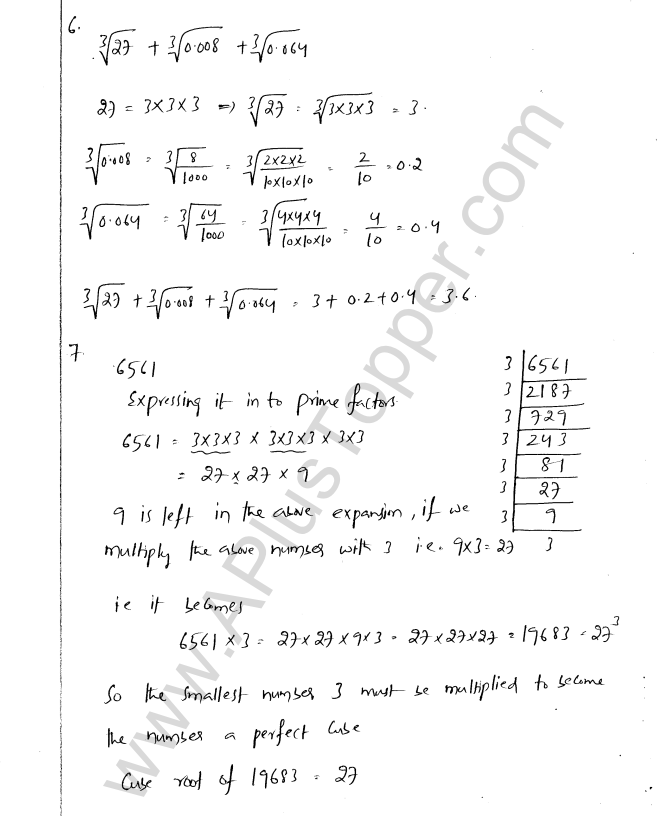 6.
∛27 + ∛0.008 + ∛0.064
27 = 3×3×3 ⇒ ∛27 = ∛(3×3×3) = 3.
∛0.008 = ∛(8/1000) = ∛((2×2×2)/(10×10×10)) = 2/10 = 0.2
∛0.064 = ∛(64/1000) = ∛((4×4×4)/(10×10×10)) = 4/10 = 0.4
∛27 + ∛0.008 + ∛0.064 = 3 + 0.2 + 0.4 = 3.6.
7.
6561
Expressing it in to prime factors
6561 = 3×3×3 × 3×3×3 × 3×3
= 27 × 27 × 9
3 | 6561
3 | 2187
3 | 729
3 | 243
3 | 81
3 | 27
3 | 9
3
9 is left in the above expansion, if we
multiply the above number with 3 i.e. 9×3 = 27
ie it becomes
6561 × 3 = 27 × 27 × 9 × 3 = 27 × 27 × 27 = 19683 = 27³
So the smallest number 3 must be multiplied to become
the number a perfect cube
Cube root of 19683 = 27
www.APlusTopper.com